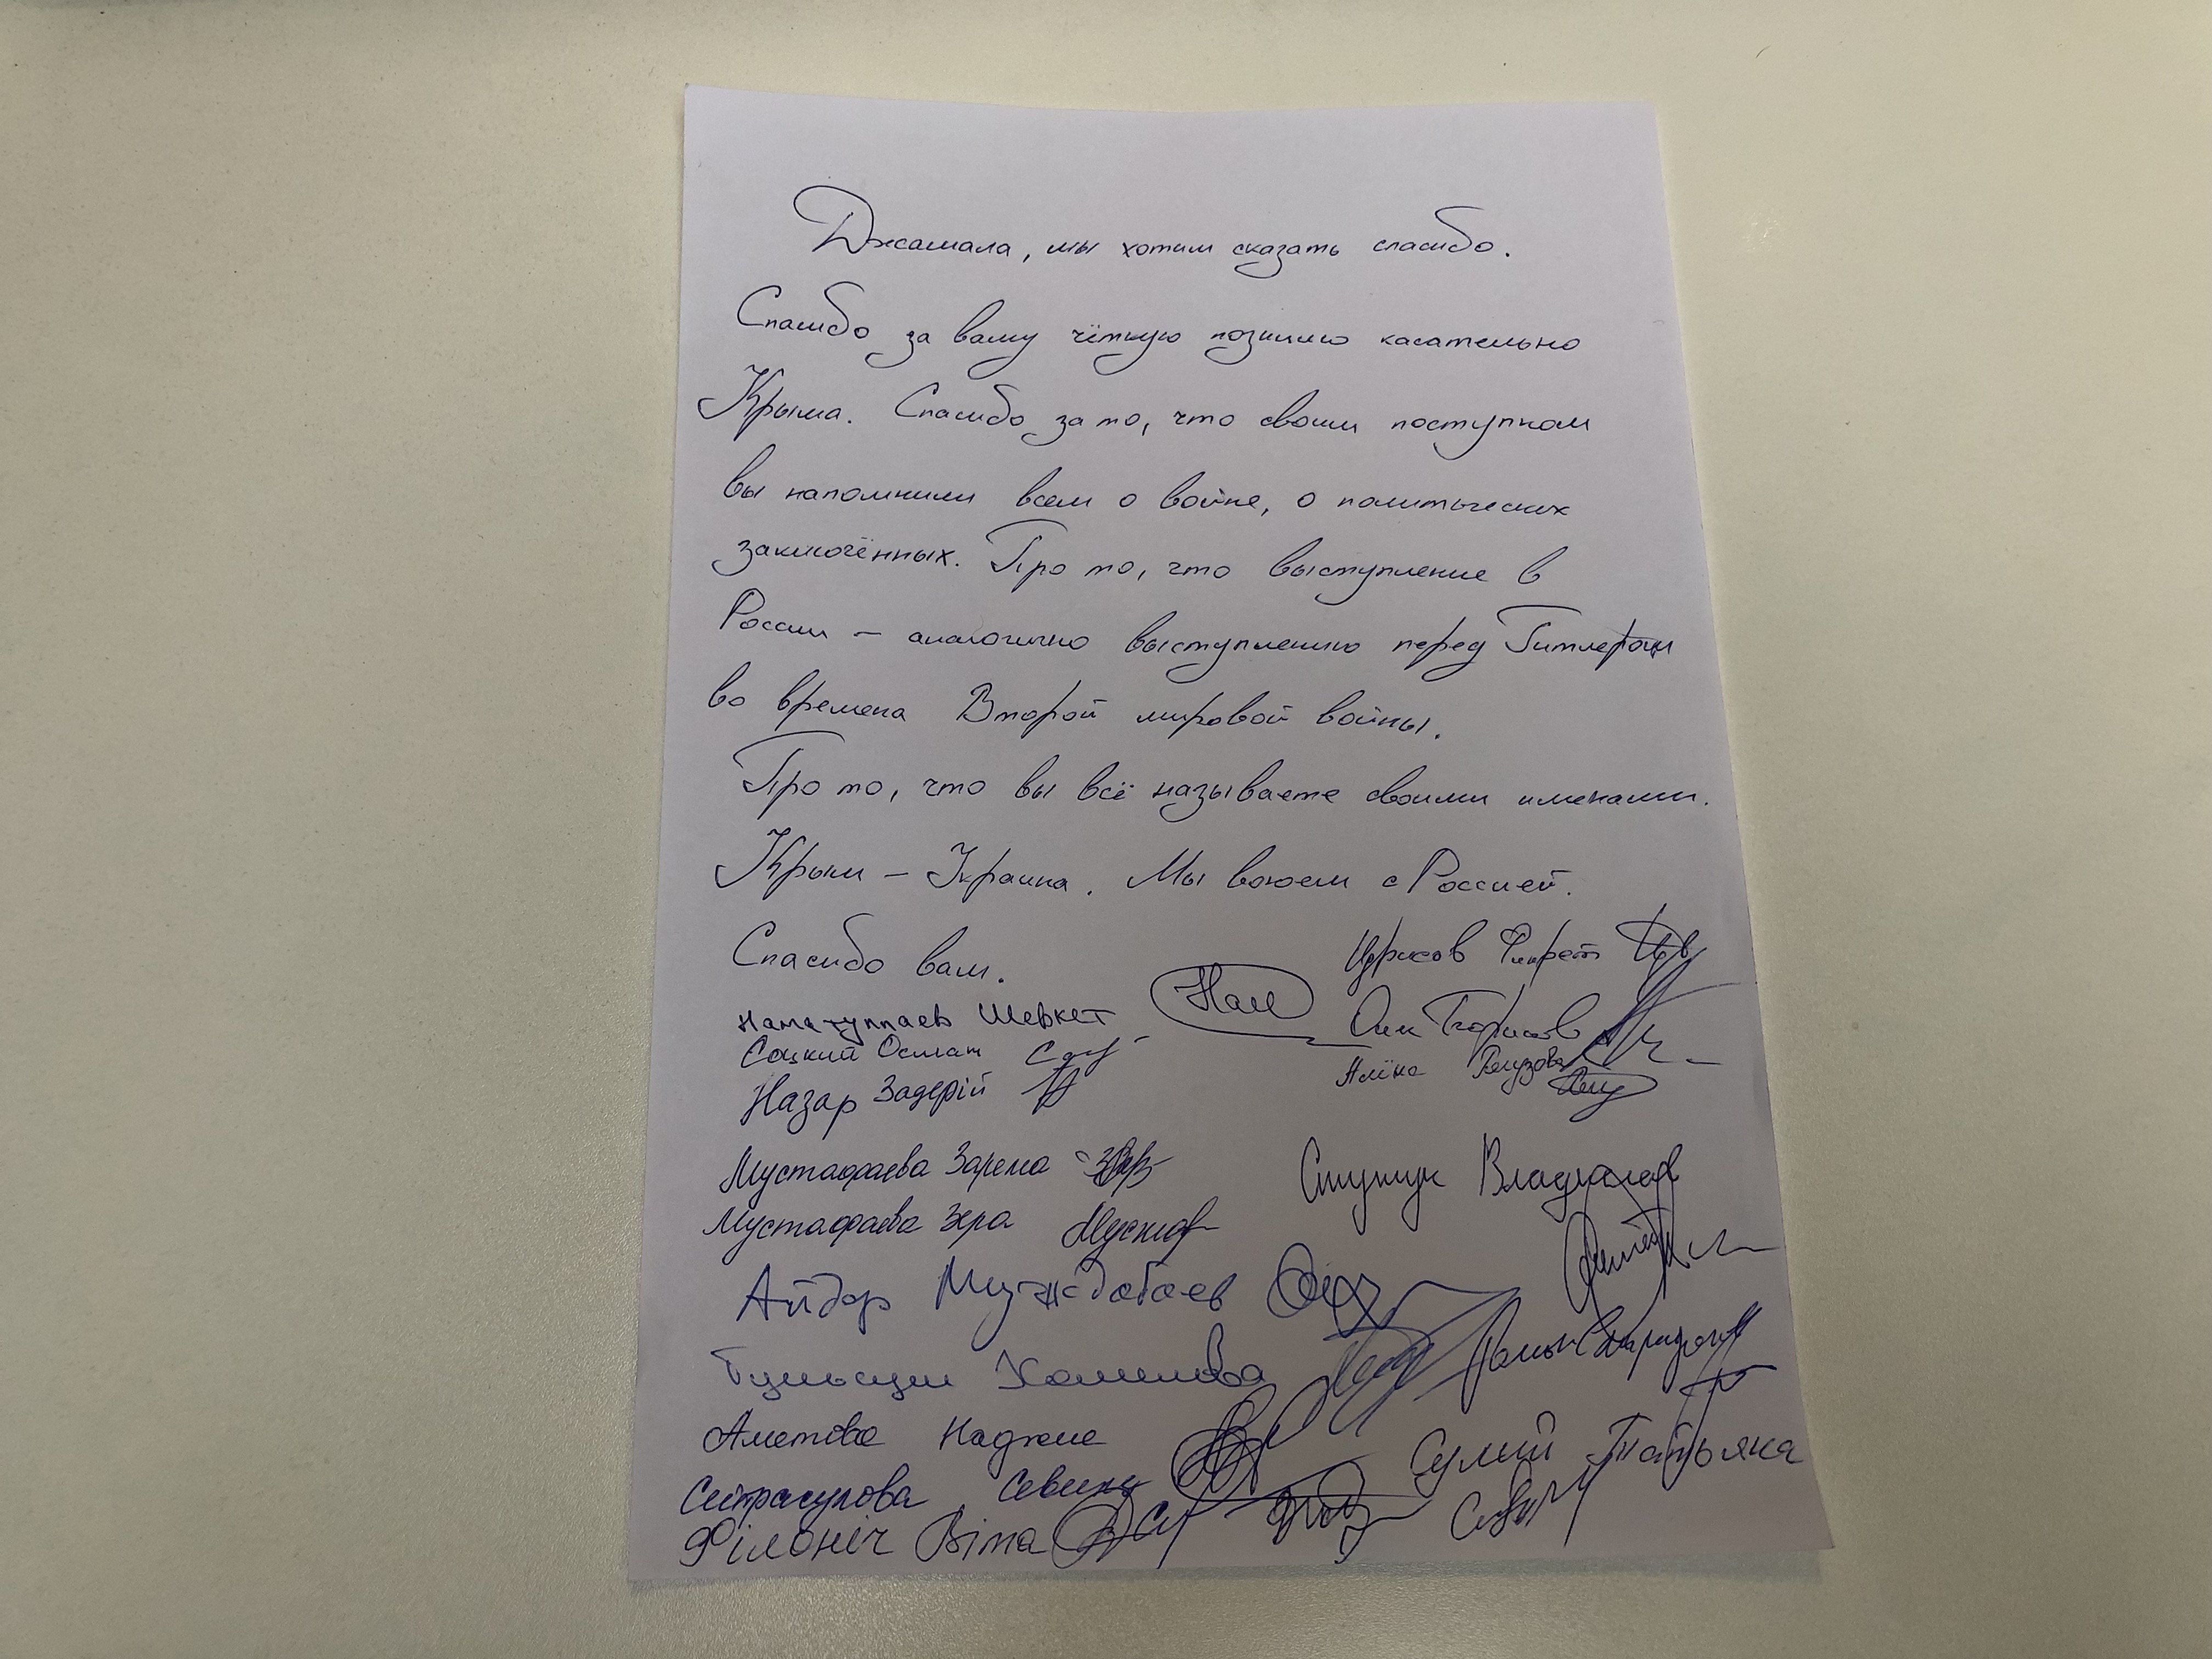 Джамала, мы хотим сказать спасибо.
Спасибо за вашу чёткую позицию касательно
Крыма. Спасибо за то, что своим поступком
вы напомнили всем о войне, о политических
заключённых. Про то, что выступление в
России – аналогично выступлению перед Гитлером
во времена Второй мировой войны.
Про то, что вы всё называете своими именами.
Крым – Украина. Мы воюем с Россией.
Спасибо вам.
Фикрет
Наматуллаев Шевкет Нам
Соцкий
Назар Задерій
Аліна
Мустафаева Зарема
Мустафаева Зера Мустаф
Владислав
Айдер Муждабаев
Гульсум Халилова
Аметова Наджие
Сулий Татьяна
Сеитрасулова Севиль
Філоніч Віта